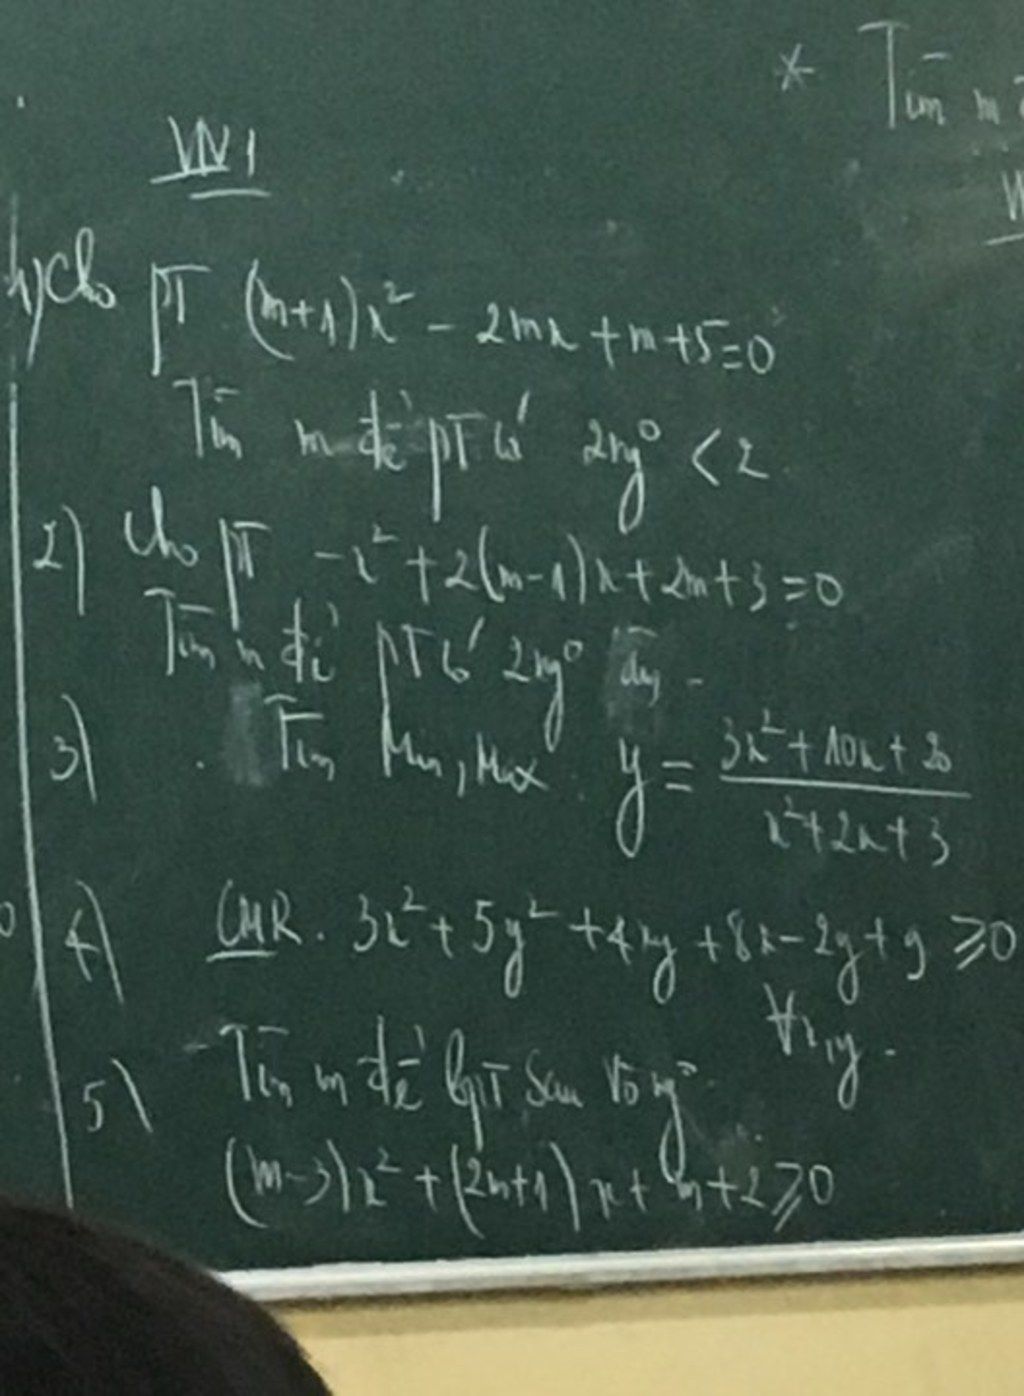 VN1
* Tìm m
1) Cho PT (m+1)x² - 2mx + m+5=0
Tìm m để PT có 2ng° < 2
2) Cho PT -x² + 2(m-1)x + 2m+3=0
Tìm m để PT có 2ng°
3) Tìm Min, Max y = \frac{3x²+10x+20}{x²+2x+3}
4) CMR. 3x² + 5y² + 4xy + 8x - 2y + 9 ⩾ 0
∀x,y.
5) Tìm m để bpT sau vô ng°.
(m-3)x² + (2m+1)x + m+2 ⩾ 0